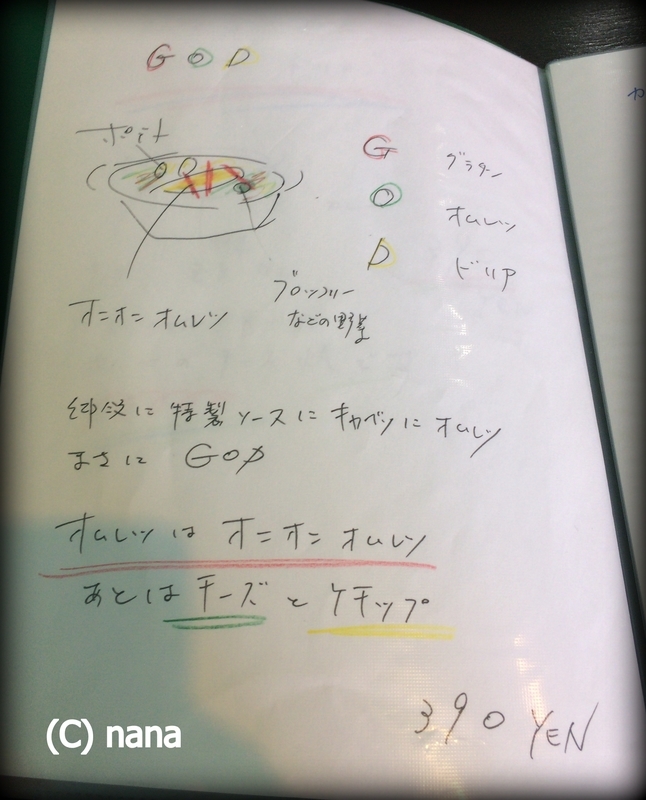 G O D
ポテト
G グラタン
O オムレツ
D ドリア
オニオニオムレツ
ブロッコリー
などの野菜
特製ソースにキャベツにオムレツ
まさに GOD
オムレツはオニオニオムレツ
あとはチーズとケチャップ
390 YEN
(C) nana